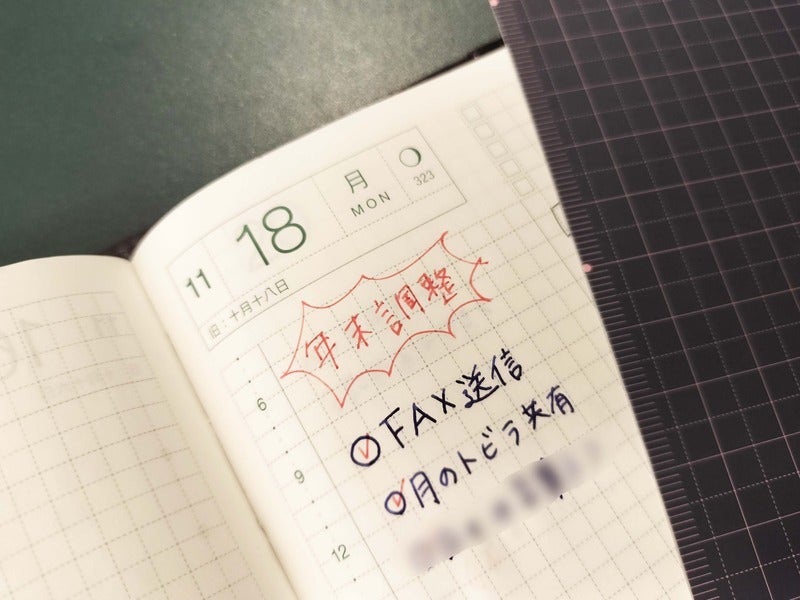 11 18 月 MON 323
旧:十月十八日
年末調整
6
FAX送信
9
月のトビラ共有
12